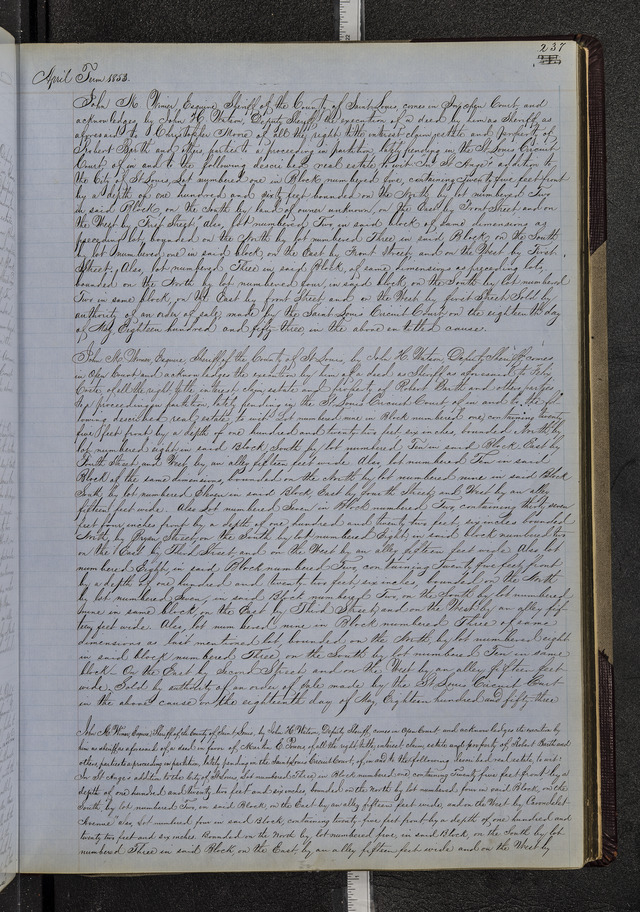 237
April Term 1853.
John M. Wimer, Esquire, Sheriff of the County of Saint Louis, comes in Open Court, and
acknowledges by John H. Watson Deputy Sheriff the execution of a deed by him as Sheriff as
aforesaid to Christopher Krone of all the right title interest claim estate and property of
Robert Barth and others parties to a proceeding in partition, lately pending in the St Louis Circuit
Court of in and to the following described real estate to wit: In St Ange's addition to
the City of St Louis, Lot numbered one in Block numbered five, containing Twenty five feet front
by a depth of one hundred and sixty feet bounded on the North by lot numbered Two
in said Block, on the South by land of owner unknown, on the East by Front Street and on
the West by First Street, also, lot numbered Two in said block of same dimensions as
preceding lot, bounded on the North by lot numbered Three in said Block, on the South
by lot numbered one in said block, on the East by Front Street, and on the West by First
Street; Also, lot numbered Three in said Block, of same dimensions as preceding lots,
bounded on the North by lot numbered four, in said block, on the South by lot numbered
Two in same block, on the East by front Street and on the West by first Street Sold by
authority of an order of sale, made by the Saint Louis Circuit Court on the eighteenth day
of May, Eighteen hundred and fifty three, in the above entitled cause.
John M. Wimer, Esquire, Sheriff of the County of St Louis, by John H. Watson Deputy Sheriff, comes
in Open Court and acknowledges the execution by him of a deed as Sheriff as aforesaid to
of all the right title interest claim estate and property of Robert Barth and other parties
to a proceeding in partition, lately pending in the St Louis Circuit Court of in and to the fol-
lowing described real estate to wit: Lot numbered nine in Block numbered one, containing twenty
five feet front by a depth of one hundred and twenty two feet six inches, bounded North by
lot numbered eight in said Block South by lot numbered Ten in said Block East by
Fourth Street and West by an alley fifteen feet wide. Also lot numbered Ten in said
Block of the same dimensions, bounded on the North by lot numbered nine in said Block
South by lot numbered Eleven in said Block East by fourth Street, and West by an alley
fifteen feet wide. Also Lot numbered Seven in Block numbered Two, containing thirty seven
feet four inches front by a depth of one hundred and twenty two feet, six inches bounded
North, by Street, on the South by lot numbered Eight, in said block numbered two
on the East by Third Street and on the West by an alley fifteen feet wide. Also lot
numbered Eight, in said Block numbered Two, containing Twenty five feet front
by a depth of one hundred and twenty two feet, six inches, bounded, on the North
by lot numbered Seven, in said Block numbered Two, on the South by lot numbered
nine in same block, on the East by Third Street, and on the West by an alley fif-
teen feet wide. Also, lot numbered nine in Block numbered Three of same
dimensions as last mentioned lot bounded, on the North, by lot numbered eight
in said block numbered Three, on the South by lot numbered Ten in same
block. On the East by Second Street and on the West by an alley fifteen feet
wide. Sold by authority of an order of sale made by the St Louis Circuit Court
in the above cause on the eighteenth day of May, Eighteen hundred and fifty three
John M. Wimer, Esquire, Sheriff of the County of Saint Louis, by John H. Watson, Deputy Sheriff, comes in Open Court and acknowledges the execution by
him as sheriff as aforesaid of a deed in favor of of all the right title, interest, claim, estate and property of Robert Barth and
other parties to a proceeding in partition, lately pending in the Saint Louis Circuit Court, of in and to the following described real estate, to wit:
In St Ange's addition to the City of St Louis Lot numbered Three in Block numbered one, containing Twenty five feet front by a
depth of one hundred and twenty two feet and six inches, bounded on the North by lot numbered four in said Block, on the
South, by lot numbered Two, in said Block, on the East by an alley fifteen feet wide, and on the West by Carondelet
Avenue Also, lot numbered four in said Block, containing twenty five feet front by a depth of one hundred and
twenty two feet and six inches. Bounded on the North by lot numbered five, in said Block, on the South by lot
numbered Three in said Block, on the East, by an alley fifteen feet wide and on the West by